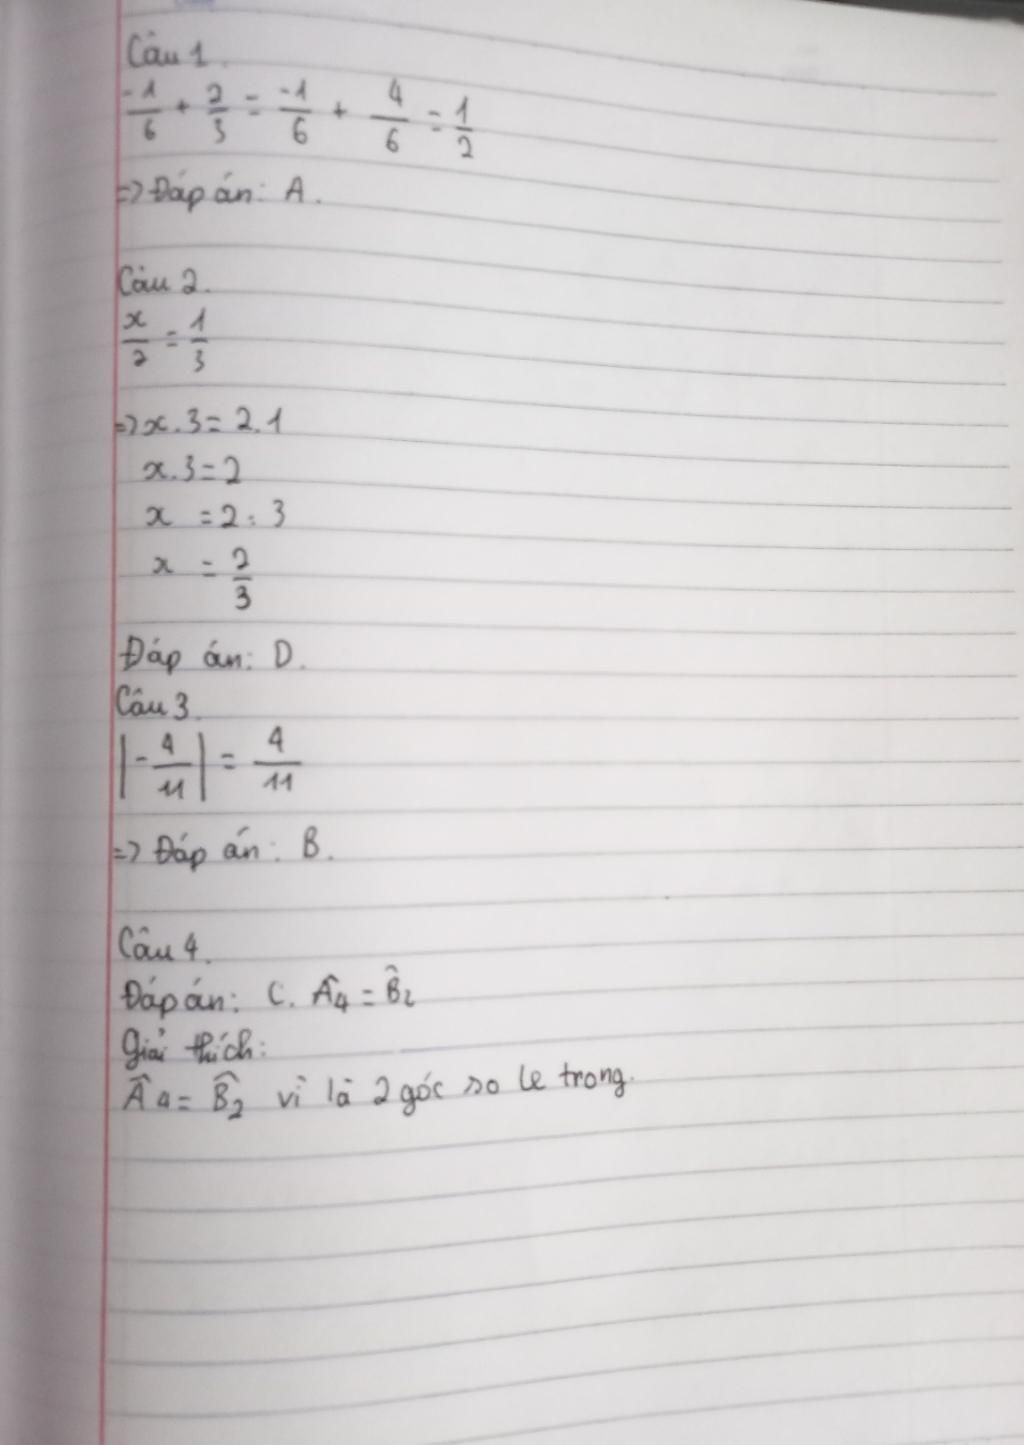 Câu 1.
-1/6 + 2/3 = -1/6 + 4/6 = 1/2
=> Đáp án: A.
Câu 2.
x/2 = 1/3
=> x.3 = 2.1
x.3 = 2
x = 2 : 3
x = 2/3
Đáp án: D.
Câu 3.
|-4/11| = 4/11
=> Đáp án: B.
Câu 4.
Đáp án: C. Â₄ = B̂₂
Giải thích:
Â₄ = B̂₂ vì là 2 góc so le trong.